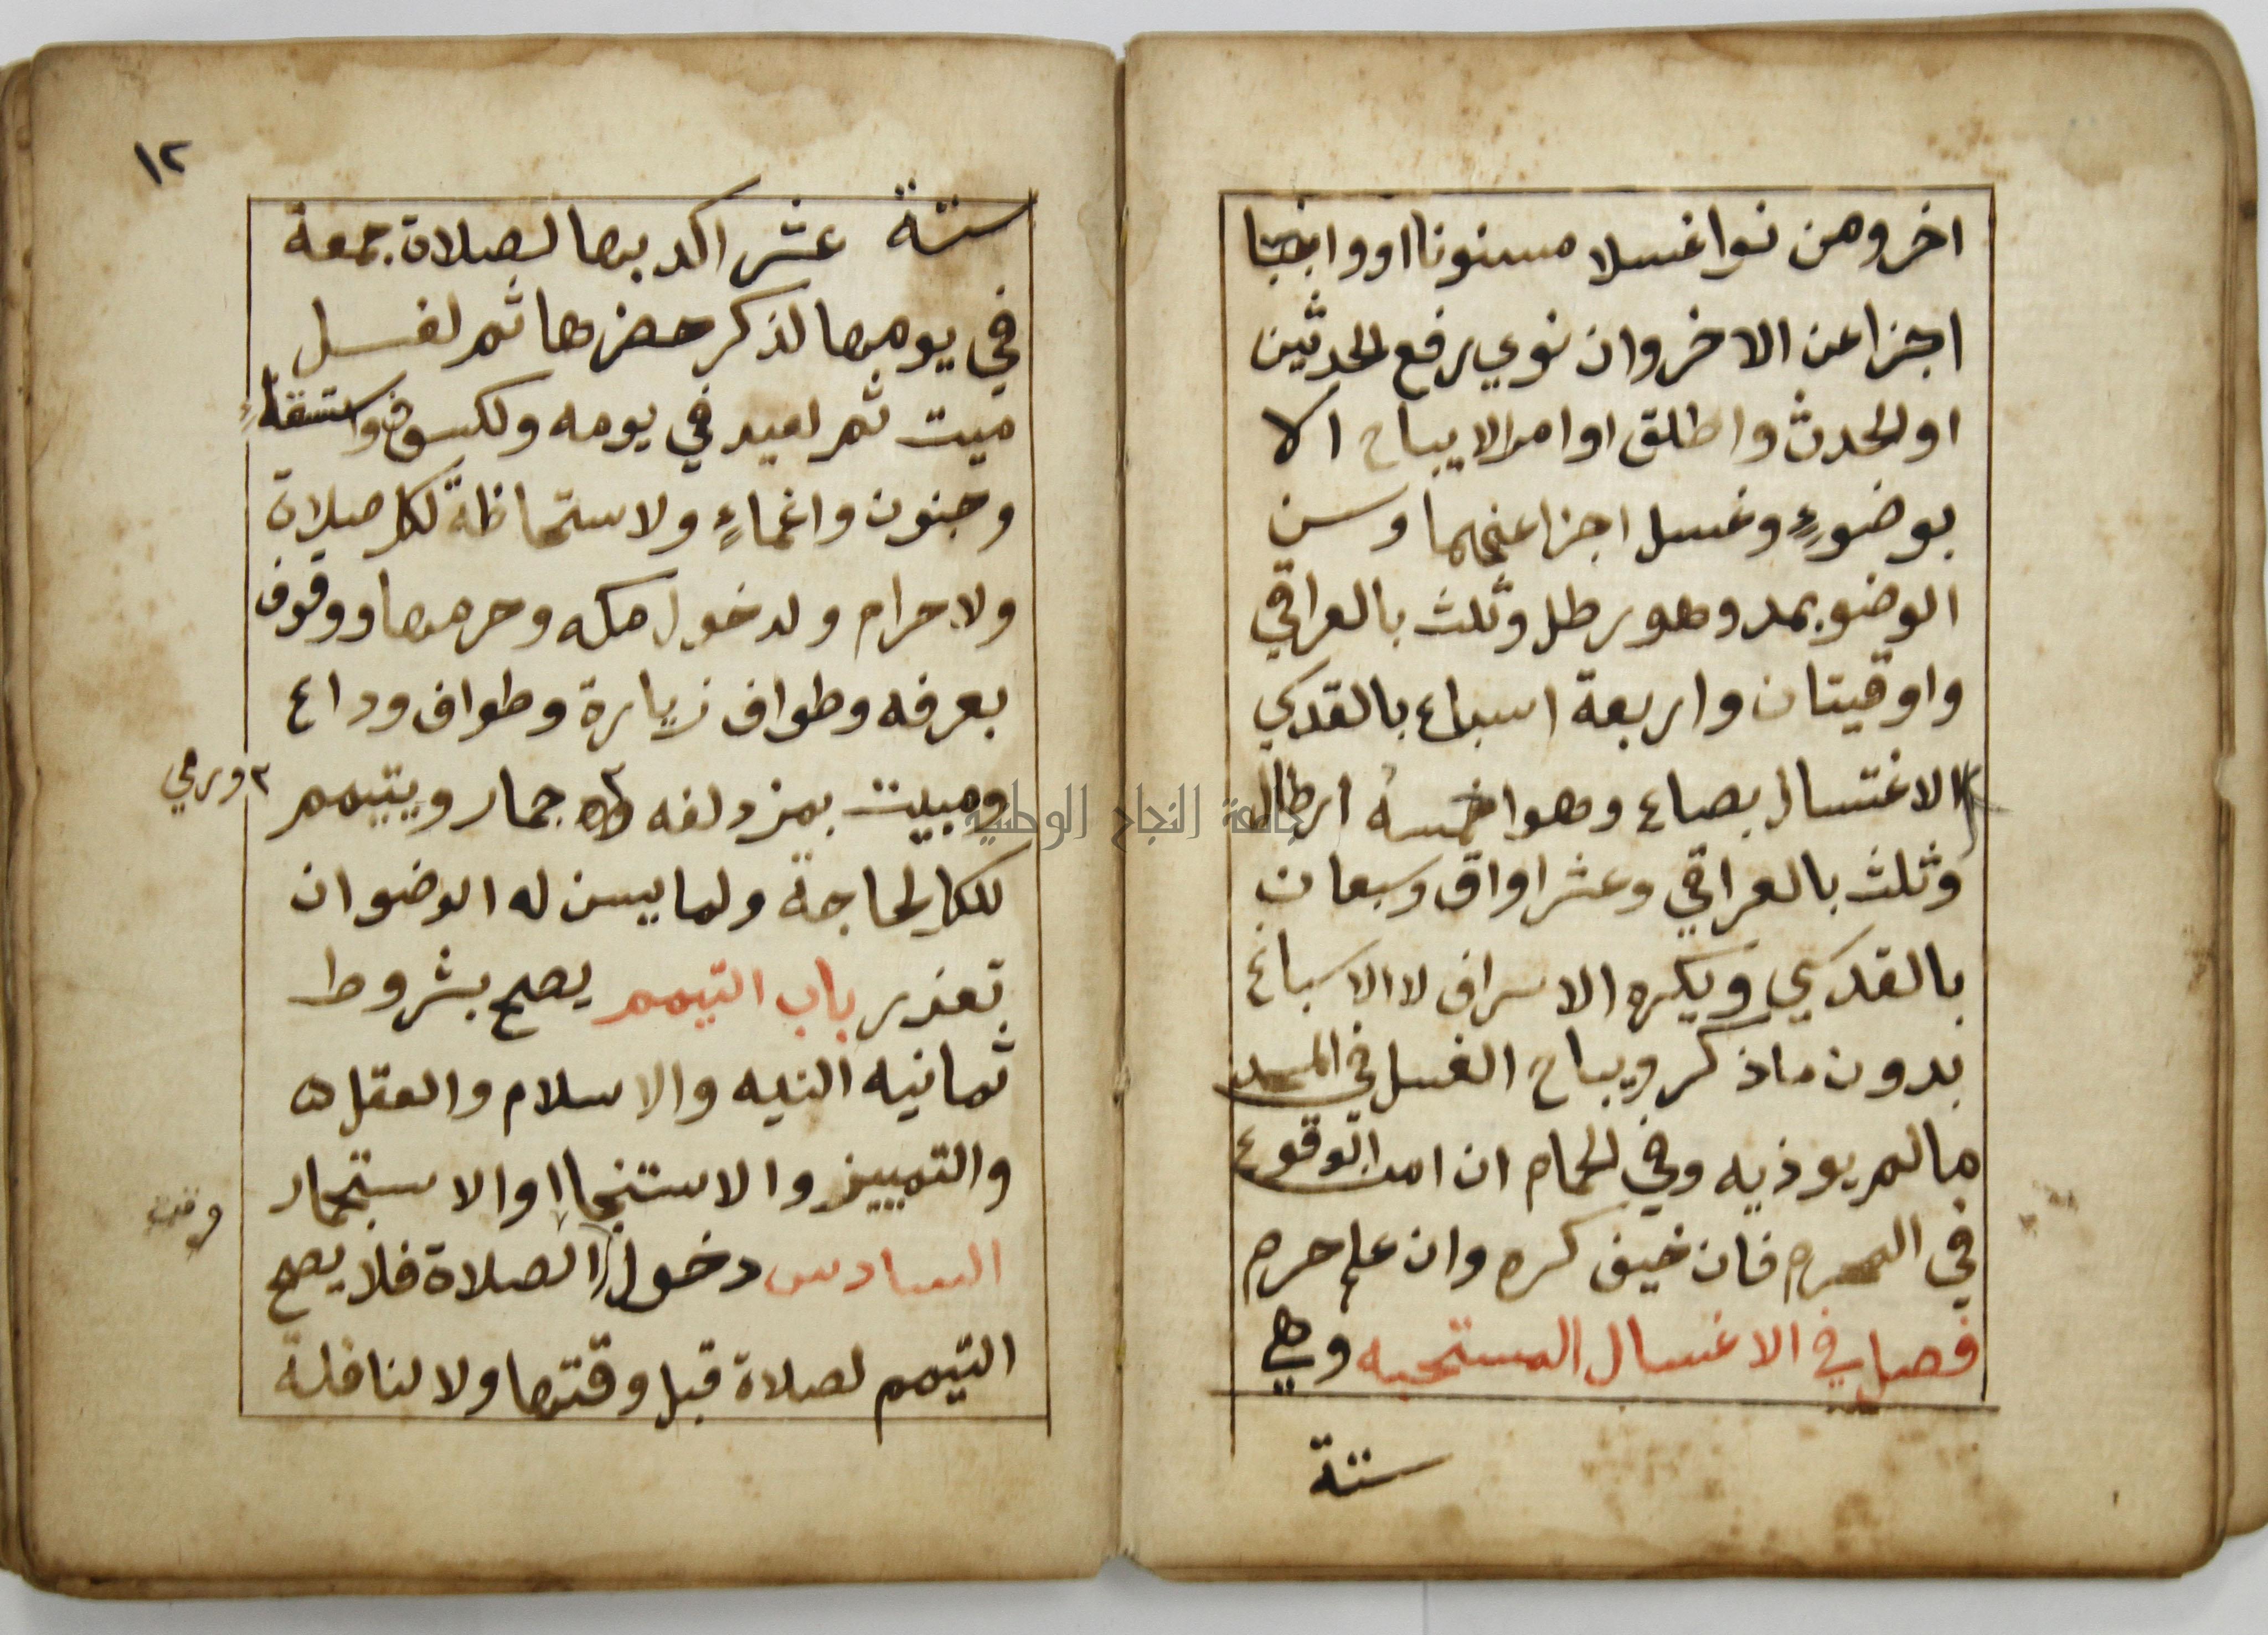 اخر ومن نوا غسلا مسنونا او واجبا
اجزا عن الاخر وان نوي رفع الحدثين
او الحدث واطلق او امرا لا يباح الا
بوضوءٍ وغسل اجزا عنهما وسن
الوضو بمد وهو رطل وثلث بالعراقي
واوقيتان واربعة اسباع بالقدسي
والاغتسال بصاع وهوا خمسه ارطال
وثلث بالعراقي وعشر اواق وسبعان
بالقدسي ويكره الاسراف لا الاسباغ
بدون ما ذكر ويباح الغسل في المسجد
مالم يوذيه وفي الحمام ان امن الوقوع
في المحرم فان خيف كره وان علم حرم
فصل في الاغسال المستحبه وهي
ستة
١٢
ستة عشر اكدبها لصلاة جمعة
في يومها لذكر حضرها ثم لغسل
ميت ثم لعيد في يومه ولكسوف واستسقاءٍ
وجنون واغماءٍ ولاستحاظة لكل صلاة
ولاحرام ولدخول مكه وحرمها ووقوف
بعرفه وطواف زيارة وطواف وداع
ومبيت بمزدلفه جمار ويتيمم
٢ ورمي
للكل لحاجة ولما يسن له الوضو ان
تعذر باب التيمم يصح بشروط
ثمانيه النيه والاسلام والعقل
والتمييز والاستنجا او الاستجمار
السادس دخول الصلاة فلا يصح
وقت
التيمم لصلاة قبل وقتها ولا لنافلة
جامعة النجاح الوطنية